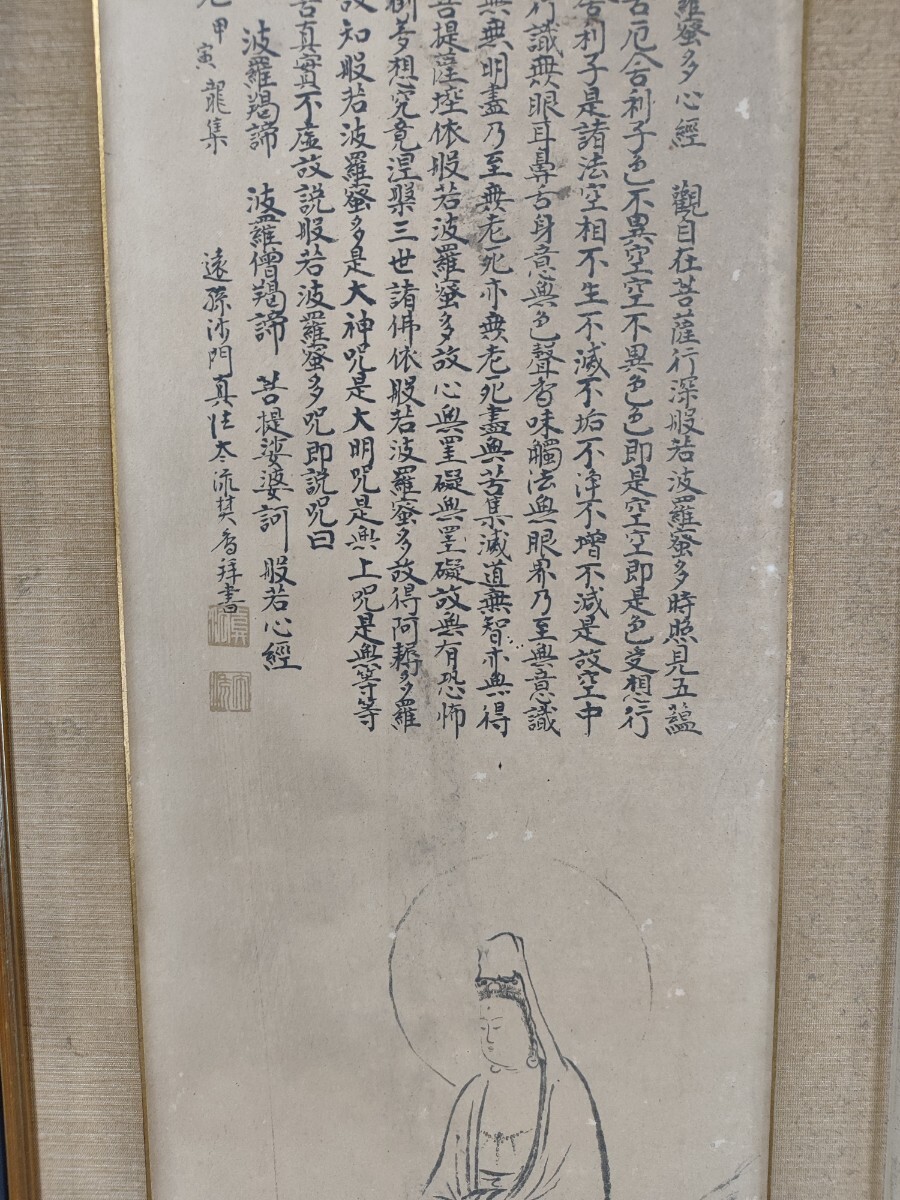 羅蜜多心經　觀自在菩薩行深般若波羅蜜多時照見五蘊
苦厄舍利子色不異空空不異色色即是空空即是色受想行
舍利子是諸法空相不生不滅不垢不淨不增不減是故空中
行識無眼耳鼻舌身意與色聲香味觸法無眼界乃至無意識
無無明盡乃至無老死亦無老死盡無苦集滅道無智亦無得
菩提薩埵依般若波羅蜜多故心無罣礙無罣礙故無有恐怖
倒夢想究竟涅槃三世諸佛依般若波羅蜜多故得阿耨多羅
故知般若波羅蜜多是大神咒是大明咒是無上咒是無等等
苦真實不虛故說般若波羅蜜多咒即說咒曰
波羅羯諦　波羅僧羯諦　菩提娑婆訶　般若心經
甲寅龍集　遠孫沙門真法
焚香拜書